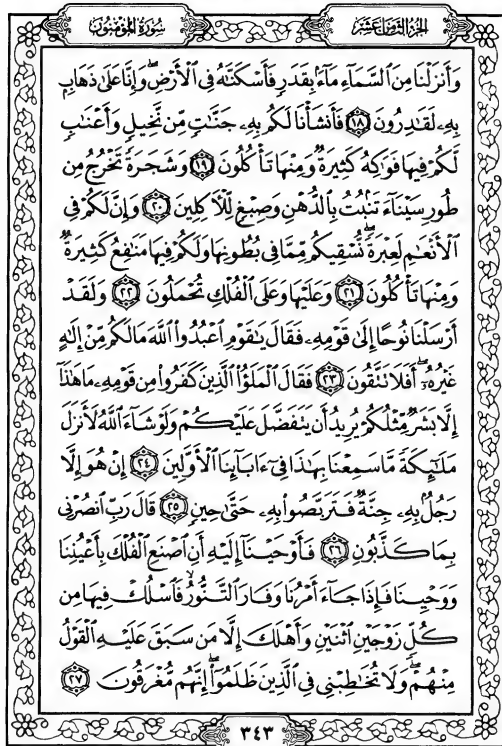 سُورَةُ المُؤْمِنُونَ الجُزْءُ الثَّامِنَ عَشَرَ
وَأَنزَلْنَا مِنَ ٱلسَّمَآءِ مَآءًۢ بِقَدَرٍ فَأَسْكَنَّٰهُ فِى ٱلْأَرْضِ ۖ وَإِنَّا عَلَىٰ ذَهَابٍۭ
بِهِۦ لَقَٰدِرُونَ ١٨ فَأَنشَأْنَا لَكُم بِهِۦ جَنَّٰتٍ مِّن نَّخِيلٍ وَأَعْنَٰبٍ
لَّكُمْ فِيهَا فَوَٰكِهُ كَثِيرَةٌ وَمِنْهَا تَأْكُلُونَ ١٩ وَشَجَرَةً تَخْرُجُ مِن
طُورِ سَيْنَآءَ تَنۢبُتُ بِٱلدُّهْنِ وَصِبْغٍ لِّلْءَاكِلِينَ ٢٠ وَإِنَّ لَكُمْ فِى
ٱلْأَنْعَٰمِ لَعِبْرَةً ۖ نُّسْقِيكُم مِّمَّا فِى بُطُونِهَا وَلَكُمْ فِيهَا مَنَٰفِعُ كَثِيرَةٌ
وَمِنْهَا تَأْكُلُونَ ٢١ وَعَلَيْهَا وَعَلَى ٱلْفُلْكِ تُحْمَلُونَ ٢٢ وَلَقَدْ
أَرْسَلْنَا نُوحًا إِلَىٰ قَوْمِهِۦ فَقَالَ يَٰقَوْمِ ٱعْبُدُوا۟ ٱللَّهَ مَا لَكُم مِّنْ إِلَٰهٍ
غَيْرُهُۥٓ ۖ أَفَلَا تَتَّقُونَ ٢٣ فَقَالَ ٱلْمَلَؤُا۟ ٱلَّذِينَ كَفَرُوا۟ مِن قَوْمِهِۦ مَا هَٰذَآ
إِلَّا بَشَرٌ مِّثْلُكُمْ يُرِيدُ أَن يَتَفَضَّلَ عَلَيْكُمْ وَلَوْ شَآءَ ٱللَّهُ لَأَنزَلَ
مَلَٰٓئِكَةً مَّا سَمِعْنَا بِهَٰذَا فِىٓ ءَابَآئِنَا ٱلْأَوَّلِينَ ٢٤ إِنْ هُوَ إِلَّا
رَجُلٌۢ بِهِۦ جِنَّةٌ فَتَرَبَّصُوا۟ بِهِۦ حَتَّىٰ حِينٍ ٢٥ قَالَ رَبِّ ٱنصُرْنِى
بِمَا كَذَّبُونِ ٢٦ فَأَوْحَيْنَآ إِلَيْهِ أَنِ ٱصْنَعِ ٱلْفُلْكَ بِأَعْيُنِنَا
وَوَحْيِنَا فَإِذَا جَآءَ أَمْرُنَا وَفَارَ ٱلتَّنُّورُ ۙ فَٱسْلُكْ فِيهَا مِن
كُلٍّ زَوْجَيْنِ ٱثْنَيْنِ وَأَهْلَكَ إِلَّا مَن سَبَقَ عَلَيْهِ ٱلْقَوْلُ
مِنْهُمْ ۖ وَلَا تُخَٰطِبْنِى فِى ٱلَّذِينَ ظَلَمُوٓا۟ ۖ إِنَّهُم مُّغْرَقُونَ ٢٧
٣٤٣